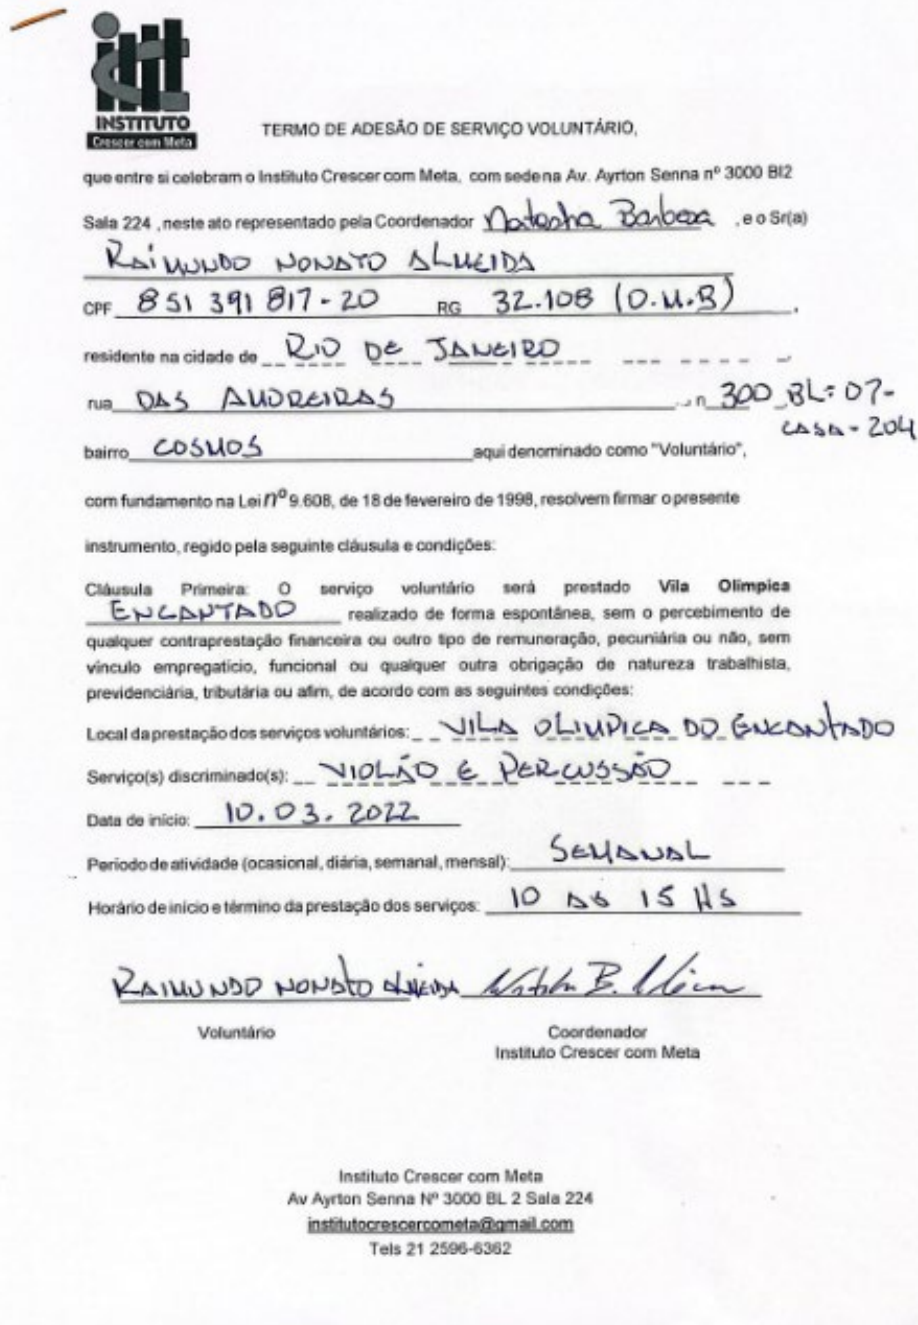 INSTITUTO
Crescer com Meta
TERMO DE ADESÃO DE SERVIÇO VOLUNTÁRIO,
que entre si celebram o Instituto Crescer com Meta, com sede na Av. Ayrton Senna nº 3000 Bl2
Sala 224 , neste ato representado pela Coordenador Natasha Barbosa , e o Sr(a)
RAIMUNDO NONATO ALMEIDA
CPF 851 391 817-20 RG 32.108 (O.M.B) ,
residente na cidade de RIO DE JANEIRO
rua DAS AMOREIRAS , n 300 BL: 07-
CASA - 204
bairro COSMOS aqui denominado como "Voluntário",
com fundamento na Lei nº 9.608, de 18 de fevereiro de 1998, resolvem firmar o presente
instrumento, regido pela seguinte cláusula e condições:
Cláusula Primeira: O serviço voluntário será prestado Vila Olímpica
ENCANTADO realizado de forma espontânea, sem o percebimento de
qualquer contraprestação financeira ou outro tipo de remuneração, pecuniária ou não, sem
vínculo empregatício, funcional ou qualquer outra obrigação de natureza trabalhista,
previdenciária, tributária ou afim, de acordo com as seguintes condições:
Local da prestação dos serviços voluntários: VILA OLIMPICA DO ENCANTADO
Serviço(s) discriminado(s): VIOLÃO E PERCUSSÃO
Data de início: 10.03.2022
Período de atividade (ocasional, diária, semanal, mensal): SEMANAL
Horário de início e término da prestação dos serviços: 10 AS 15 HS
RAIMUNDO NONATO ALMEIDA
Voluntário Coordenador
Instituto Crescer com Meta
Instituto Crescer com Meta
Av Ayrton Senna Nº 3000 BL 2 Sala 224
institutocrescercometa@gmail.com
Tels 21 2596-6362